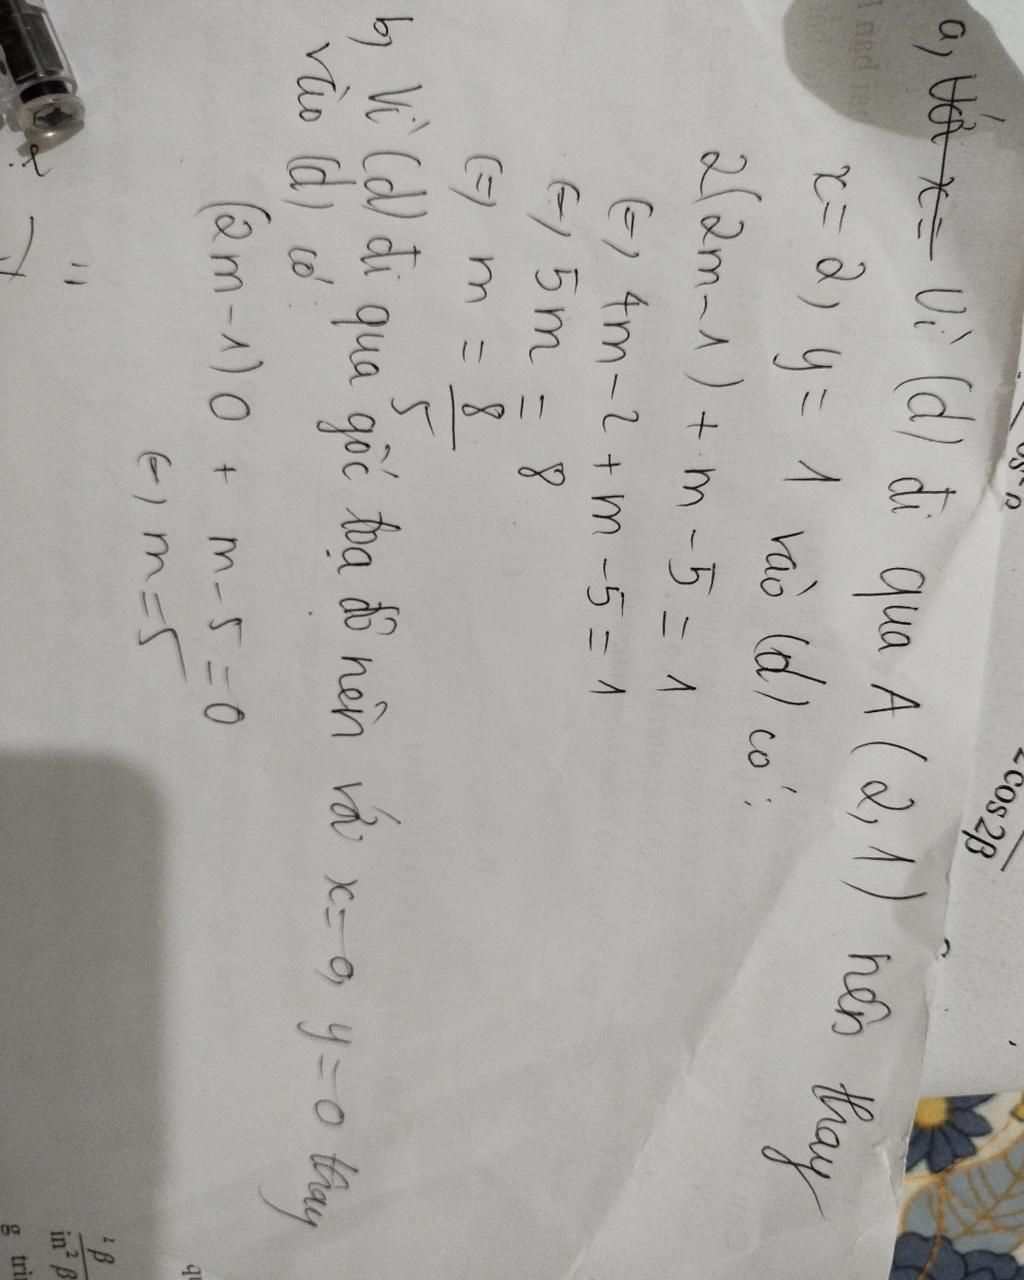 a, Với x= Vì (d) đi qua A (2, 1) nên thay
x= 2, y= 1 vào (d) có:
2(2m-1) + m-5 = 1
(=) 4m-2 + m-5 = 1
(=) 5m = 8
(=) m = 8/5
b, Vì (d) đi qua gốc toạ độ nên với x=0, y=0 thay
vào (d) có:
(2m-1) 0 + m-5 = 0
(=) m=5
2cos2β
in² β